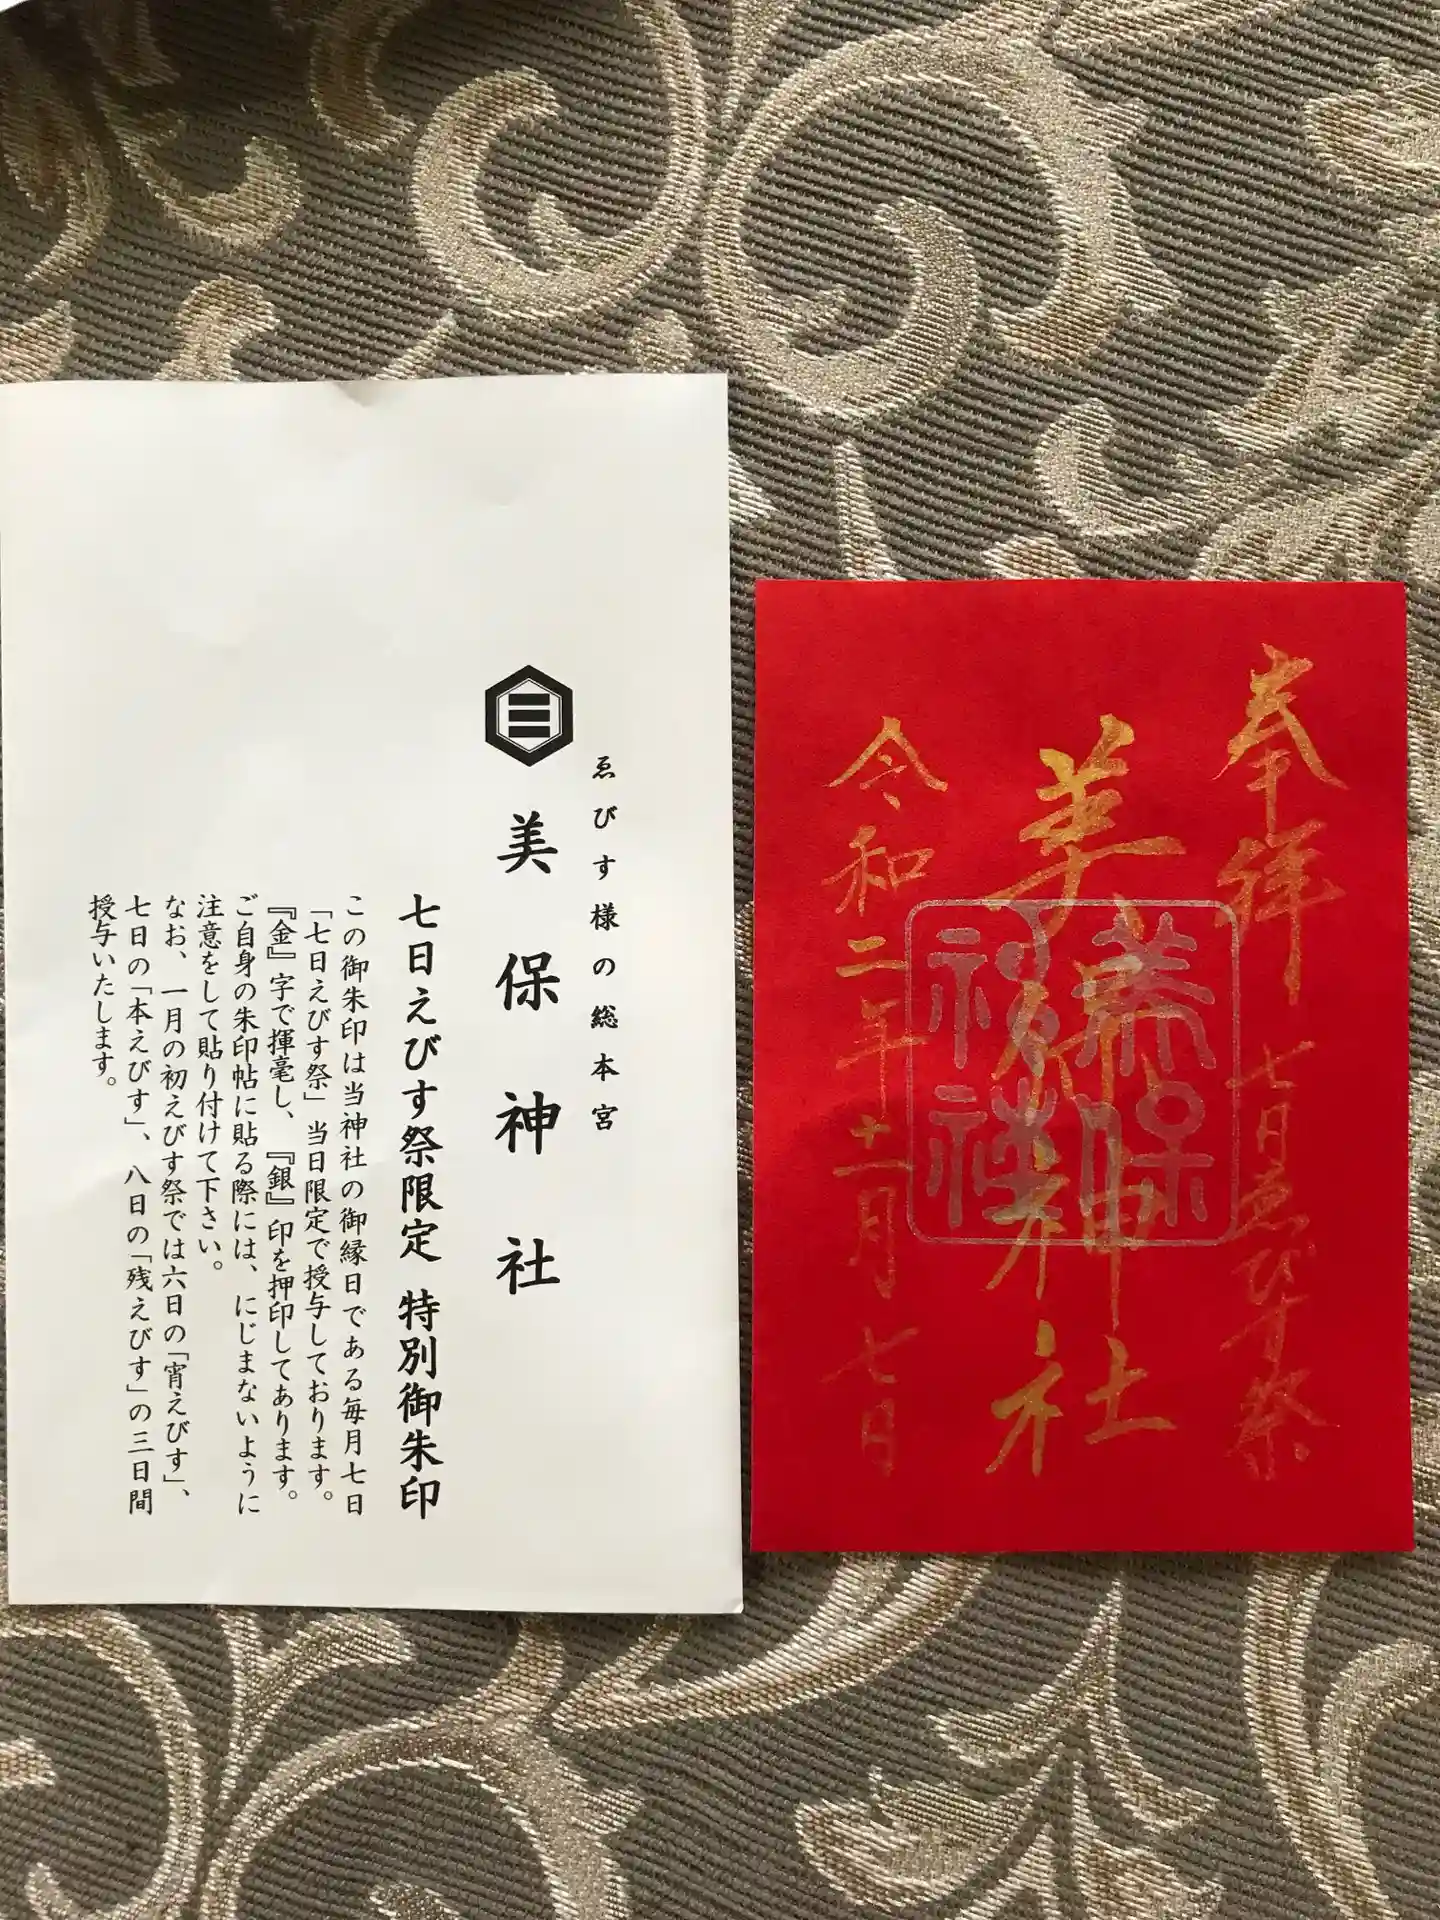 ゑびす様の総本宮
美保神社
七日えびす祭限定 特別御朱印
この御朱印は当神社の御縁日である毎月七日
「七日えびす祭」当日限定で授与しております。
『金』字で揮毫し、『銀』印を押印してあります。
ご自身の朱印帖に貼る際には、にじまないように
注意をして貼り付けて下さい。
なお、一月の初えびす祭では六日の「宵えびす」、
七日の「本えびす」、八日の「残えびす」の三日間
授与いたします。
奉拝 七日ゑびす祭
美保神社
美保神社
令和二年十二月七日